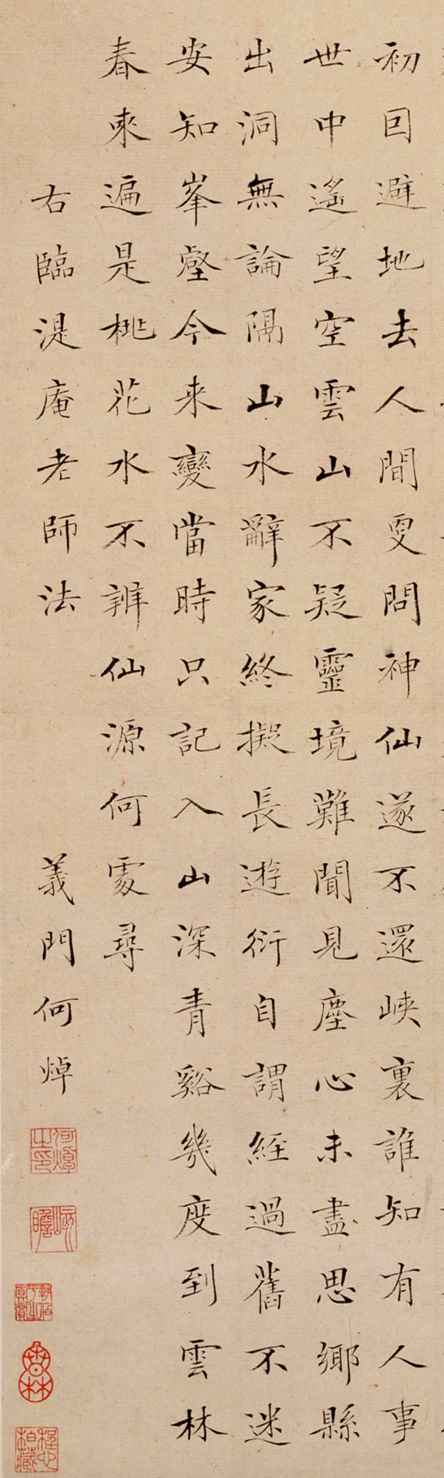 初因避地去人間更問神仙遂不還峽裏誰知有人事
世中遙望空雲山不疑靈境難聞見塵心未盡思鄉縣
出洞無論隔山水辭家終擬長遊衍自謂經過舊不迷
安知峯壑今來變當時只記入山深青谿幾度到雲林
春來遍是桃花水不辨仙源何處尋
右臨湜庵老師法
義門何焯
何焯之印
屺瞻
香林